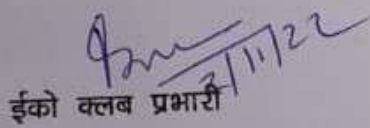 2/11/22
ईको क्लब प्रभारी